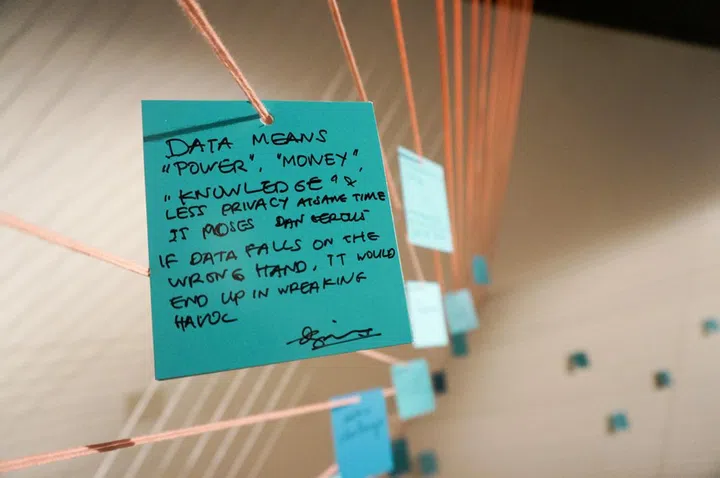 DATA MEANS
"POWER", "MONEY",
"KNOWLEDGE" &
LESS PRIVACY AT SAME TIME
IT POSES DANGEROUS
IF DATA FALLS ON THE
WRONG HAND, IT WOULD
END UP IN WREAKING
HAVOC